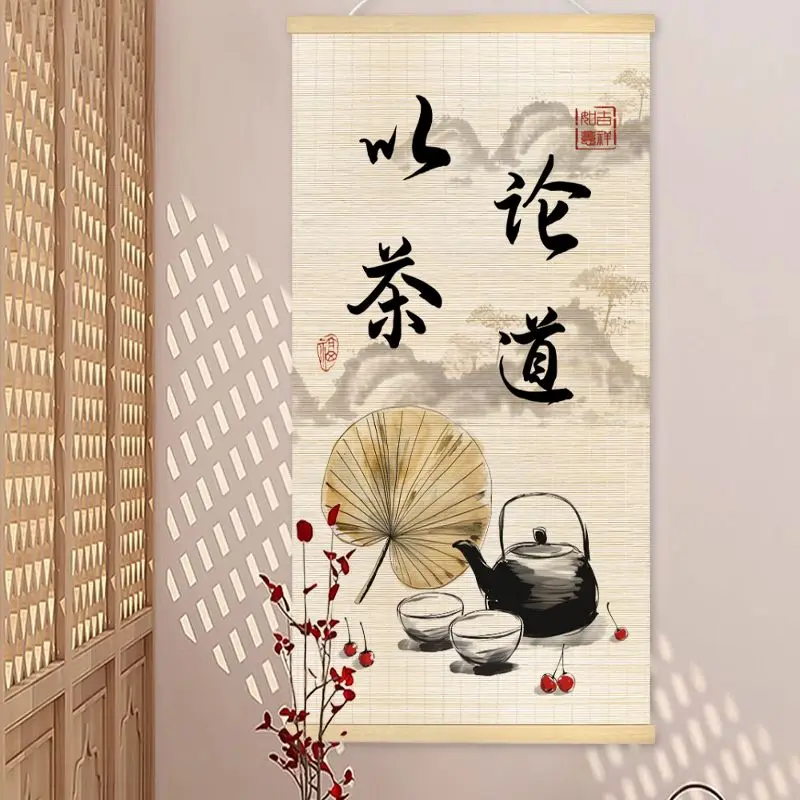 以茶
论道
吉祥如意
福